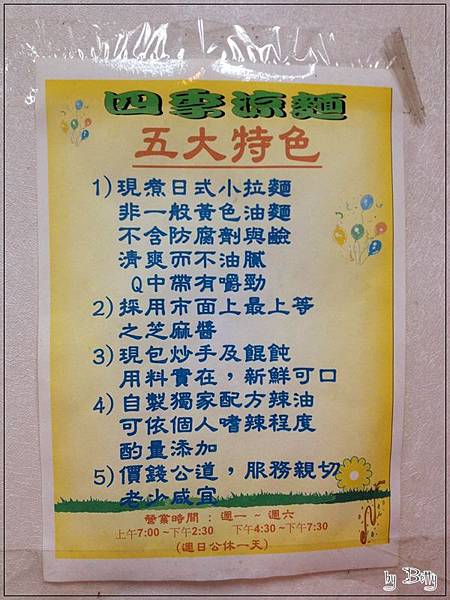 四季涼麵
五大特色
1)現煮日式小拉麵
非一般黃色油麵
不含防腐劑與鹼
清爽而不油膩
Q中帶有嚼勁
2)採用市面上最上等
之芝麻醬
3)現包炒手及餛飩
用料實在，新鮮可口
4)自製獨家配方辣油
可依個人嗜辣程度
酌量添加
5)價錢公道，服務親切
老少咸宜
營業時間：週一 ~ 週六
上午7:00 ~下午2:30 下午4:30 ~下午7:30
(週日公休一天)
by Betty